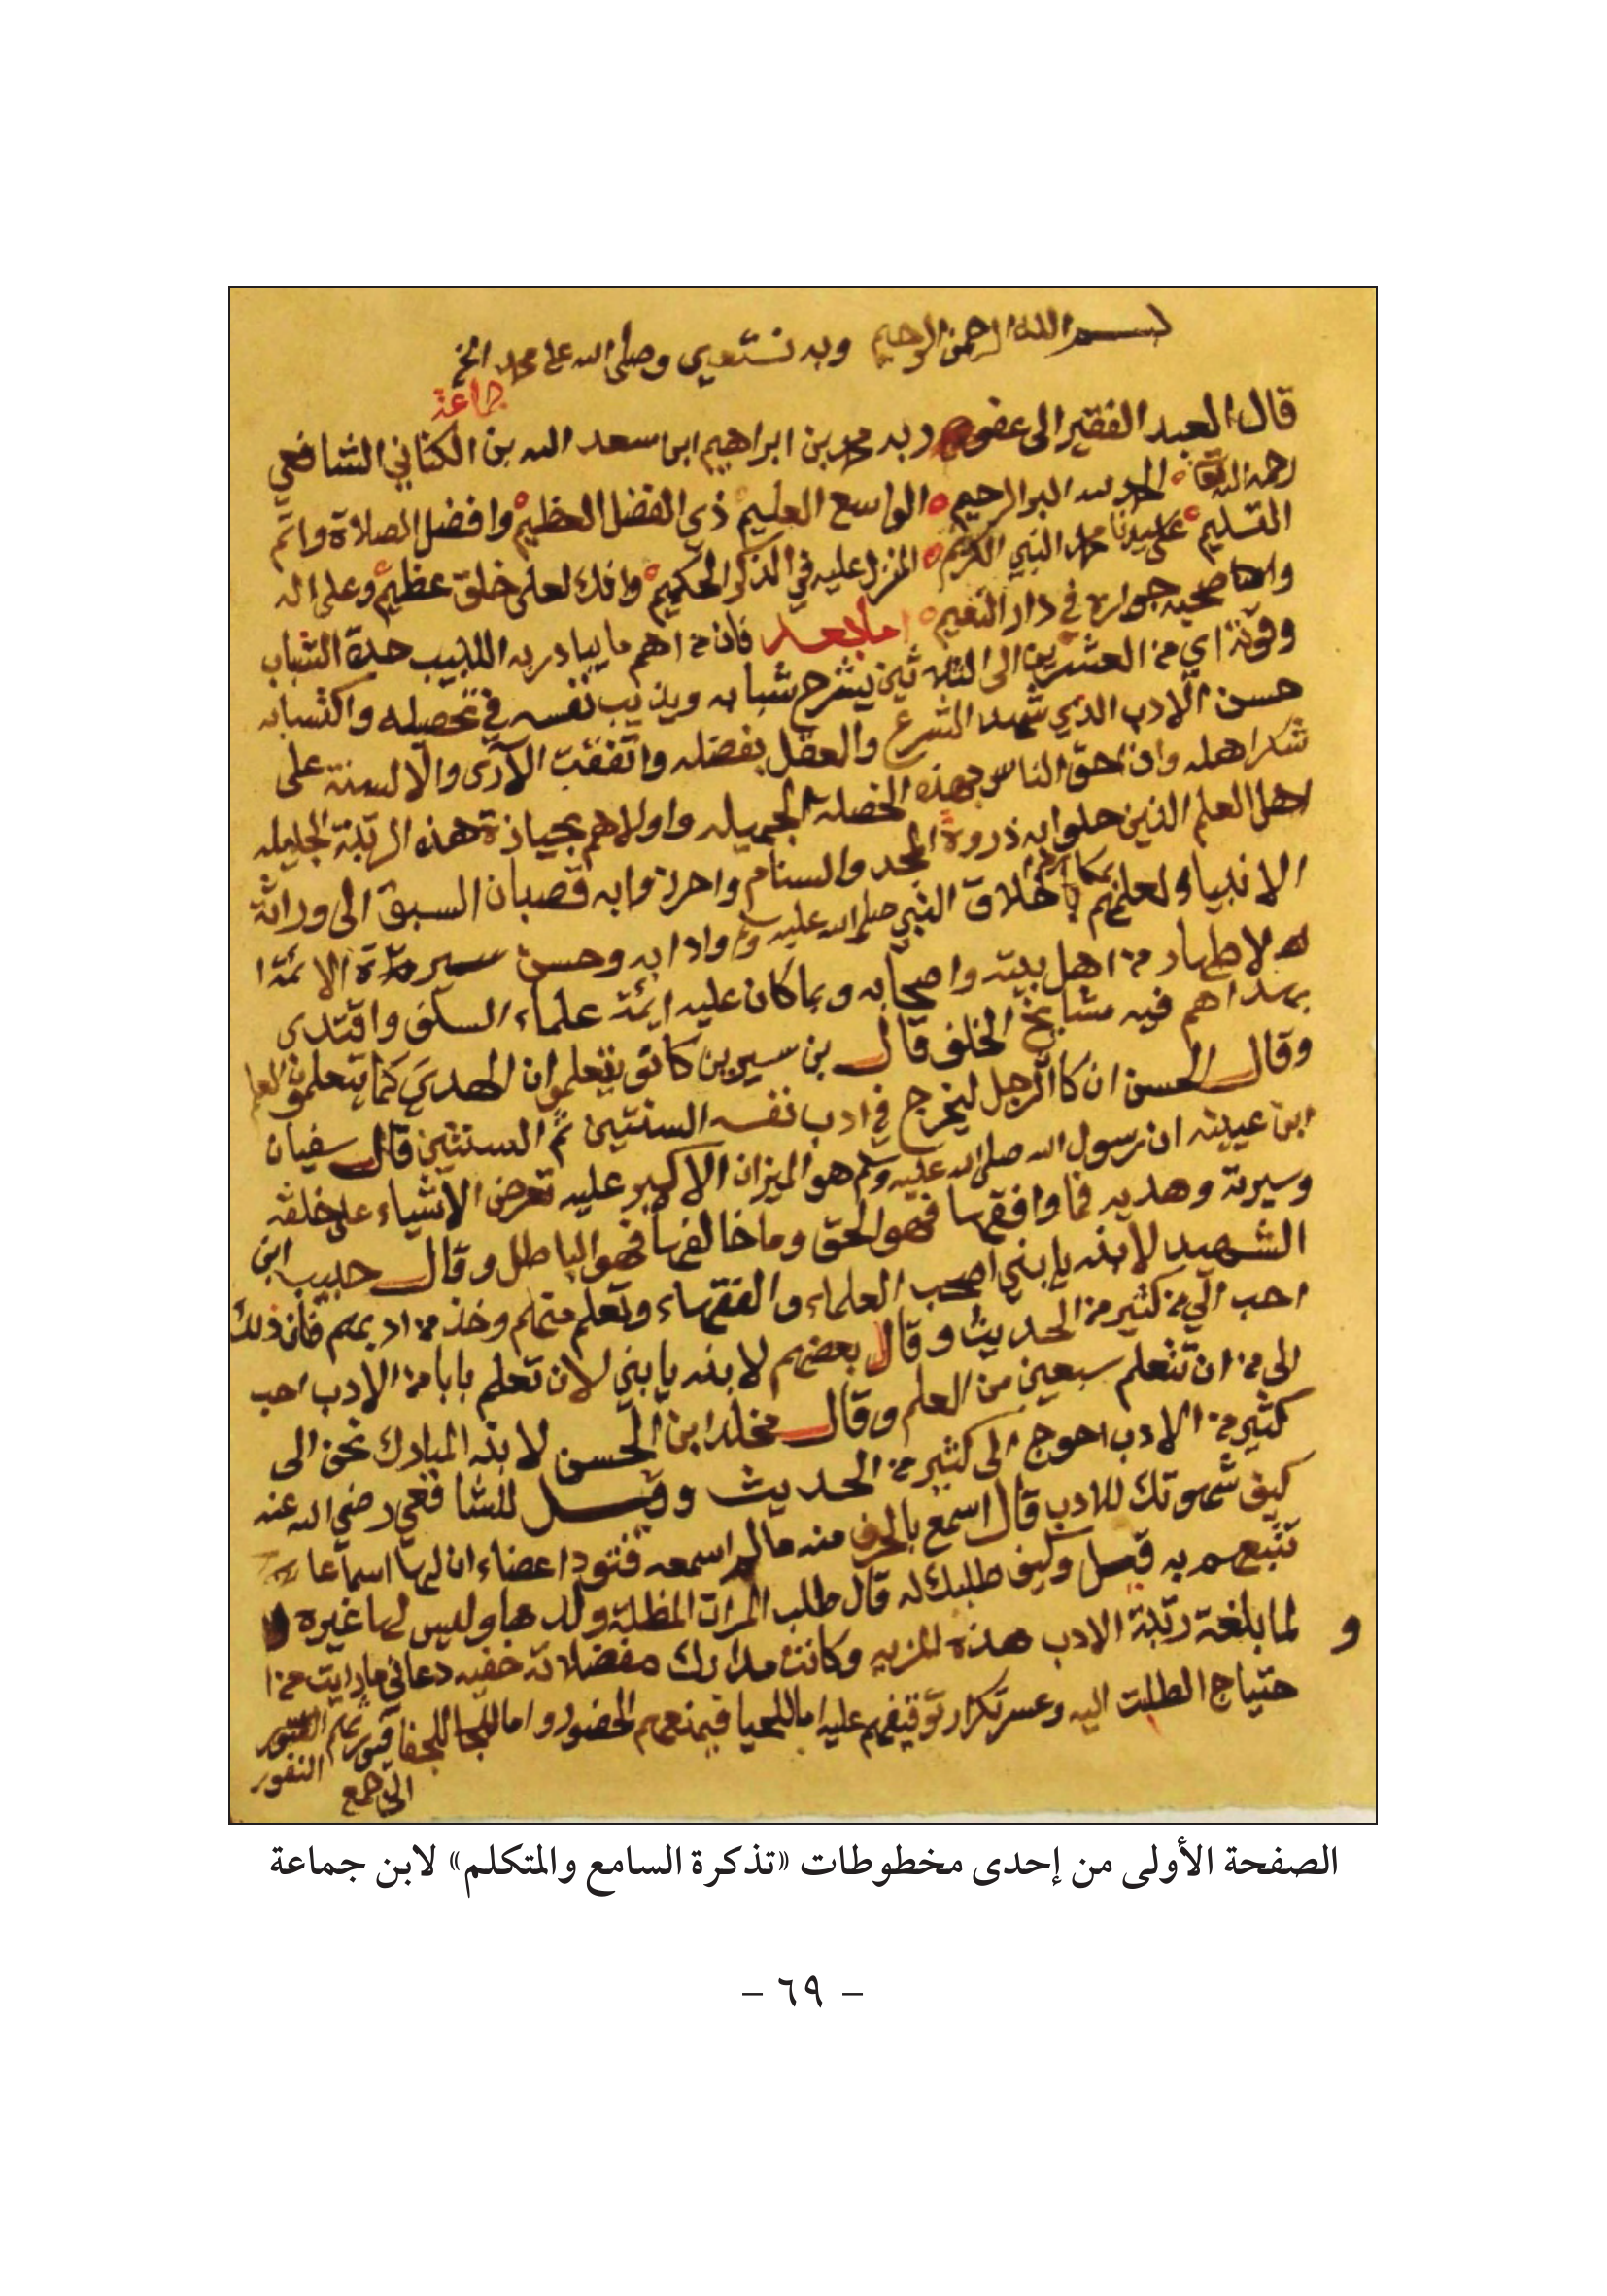 بسم الله الرحمن الرحيم وبه نستعين وصلى الله على محمد الخ
جماعة
قال العبد الفقير الى عفو ربه محمد بن ابراهيم ابن سعد الله بن الكناني الشافعي
رحمه الله تعا الحمد لله البر الرحيم الواسع العليم ذي الفضل العظيم وافضل الصلاة واتم
التسليم على سيدنا محمد النبي الكريم المنزل عليه في الذكر الحكيم وانك لعلى خلق عظيم وعلى اله
واصحابه جواره في دار النعيم اما بعد فان من اهم ما يبادر به اللبيب حدة الشباب
وقوته اي من العشرين الى الثلاثين يشرح شبابه ويذيب نفسه في تحصيله واكتسابه
حسن الادب الذي شهد الشرع والعقل بفضله واتفقت الآرى والالسنة على
شكر اهله وان احق الناس بهذه الخصلة الجميله واولاهم بحيازة هذه الرتبة الجليله
اهل العلم الذين حلوا به ذروة المجد والسنام واحرزوا به قصبات السبق الى وراثة
الانبياء ولعلمهم بمكارم اخلاق النبي صلى الله عليه وسلم وادابه وحسن سيرة الائمة ا
لاطهار من اهل بيته واصحابه وبما كان عليه ايمة علماء السلف واقتدى
بهداهم فيه مشايخ الخلف قال بن سيرين كانو يتعلمو ان الهدي كما يتعلمون العلم
وقال الحسن ان كا الرجل ليخرج في ادب نفسه السنتين ثم السنتين قال سفيان
ابن عيينه ان رسول الله صلى الله عليه وسلم هو الميزان الاكبر عليه تعرض الاشياء على خلقه
وسيرته وهديه فما وافقها فهو الحق وما خالفها فهو الباطل وقال حبيب ابن
الشهيد لابنه يا بني اصحب العلماء والفقهاء وتعلم منهم وخذ من ادبهم فان ذلك
احب الي من كثير من الحديث وقال بعضهم لابنه يا بني لان تعلم بابا من الادب احب
الى من ان تتعلم سبعين من العلم وقال مخلد ابن الحسن لابنه المبارك نحن الى
كثير من الادب احوج الى كثير من الحديث وقيل للشافعي رضي الله عنه
كيف شهوتك للادب قال اسمع بالحرف منه مالم اسمعه فتود اعضاء ان لها اسماعا
تتبعهم به قيل وكيف طلبك له قال طلب المراة المظلة ولدها وليس لها غيره
و لما بلغت رتبة الادب هذه المزيه وكانت مدارك مفضلاته خفيه دعاني ما رايت من ا
حتياج الطلبة اليه وعسر تكرار توقيفهم عليه اما للحيا فيمنعهم الحضور واما للجفا فيورثهم
النفور
الى جمع
الصفحة الأولى من إحدى مخطوطات «تذكرة السامع والمتكلم» لابن جماعة
– ٦٩ –